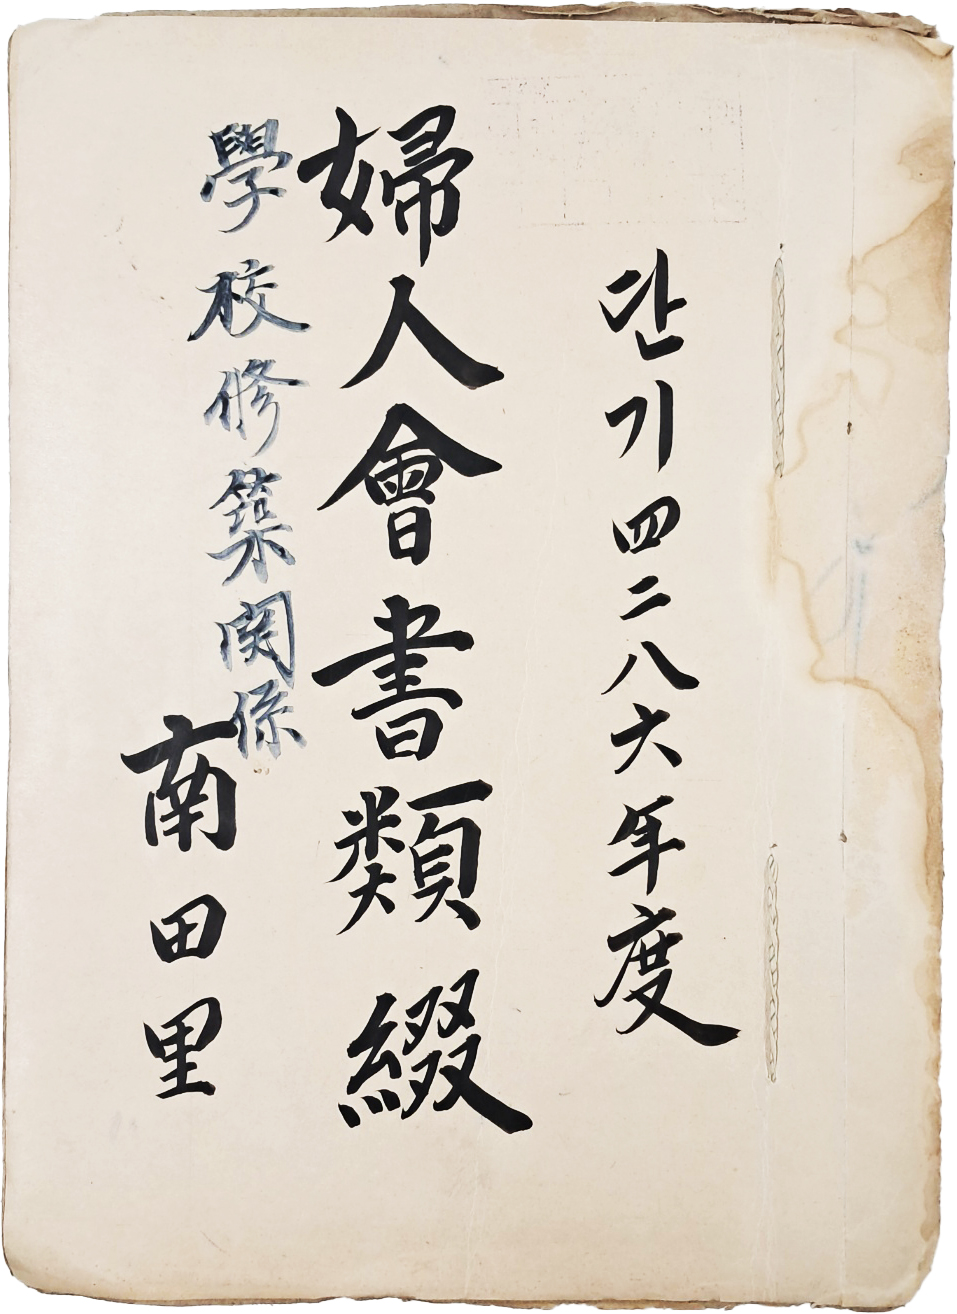 간기四二八六年度
婦人會書類綴
學校修築関係
南田里